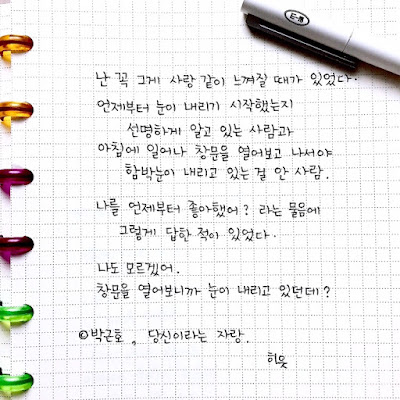 E-충
난 꼭 그게 사랑 같이 느껴질 때가 있었다.
언제부터 눈이 내리기 시작했는지
선명하게 알고 있는 사람과
아침에 일어나 창문을 열어보고 나서야
함박눈이 내리고 있는 걸 안 사람.
나를 언제부터 좋아했어? 라는 물음에
그렇게 답한 적이 있었다.
나도 모르겠어.
창문을 열어보니까 눈이 내리고 있던데?
©박근호, 당신이라는 자랑.
히읏